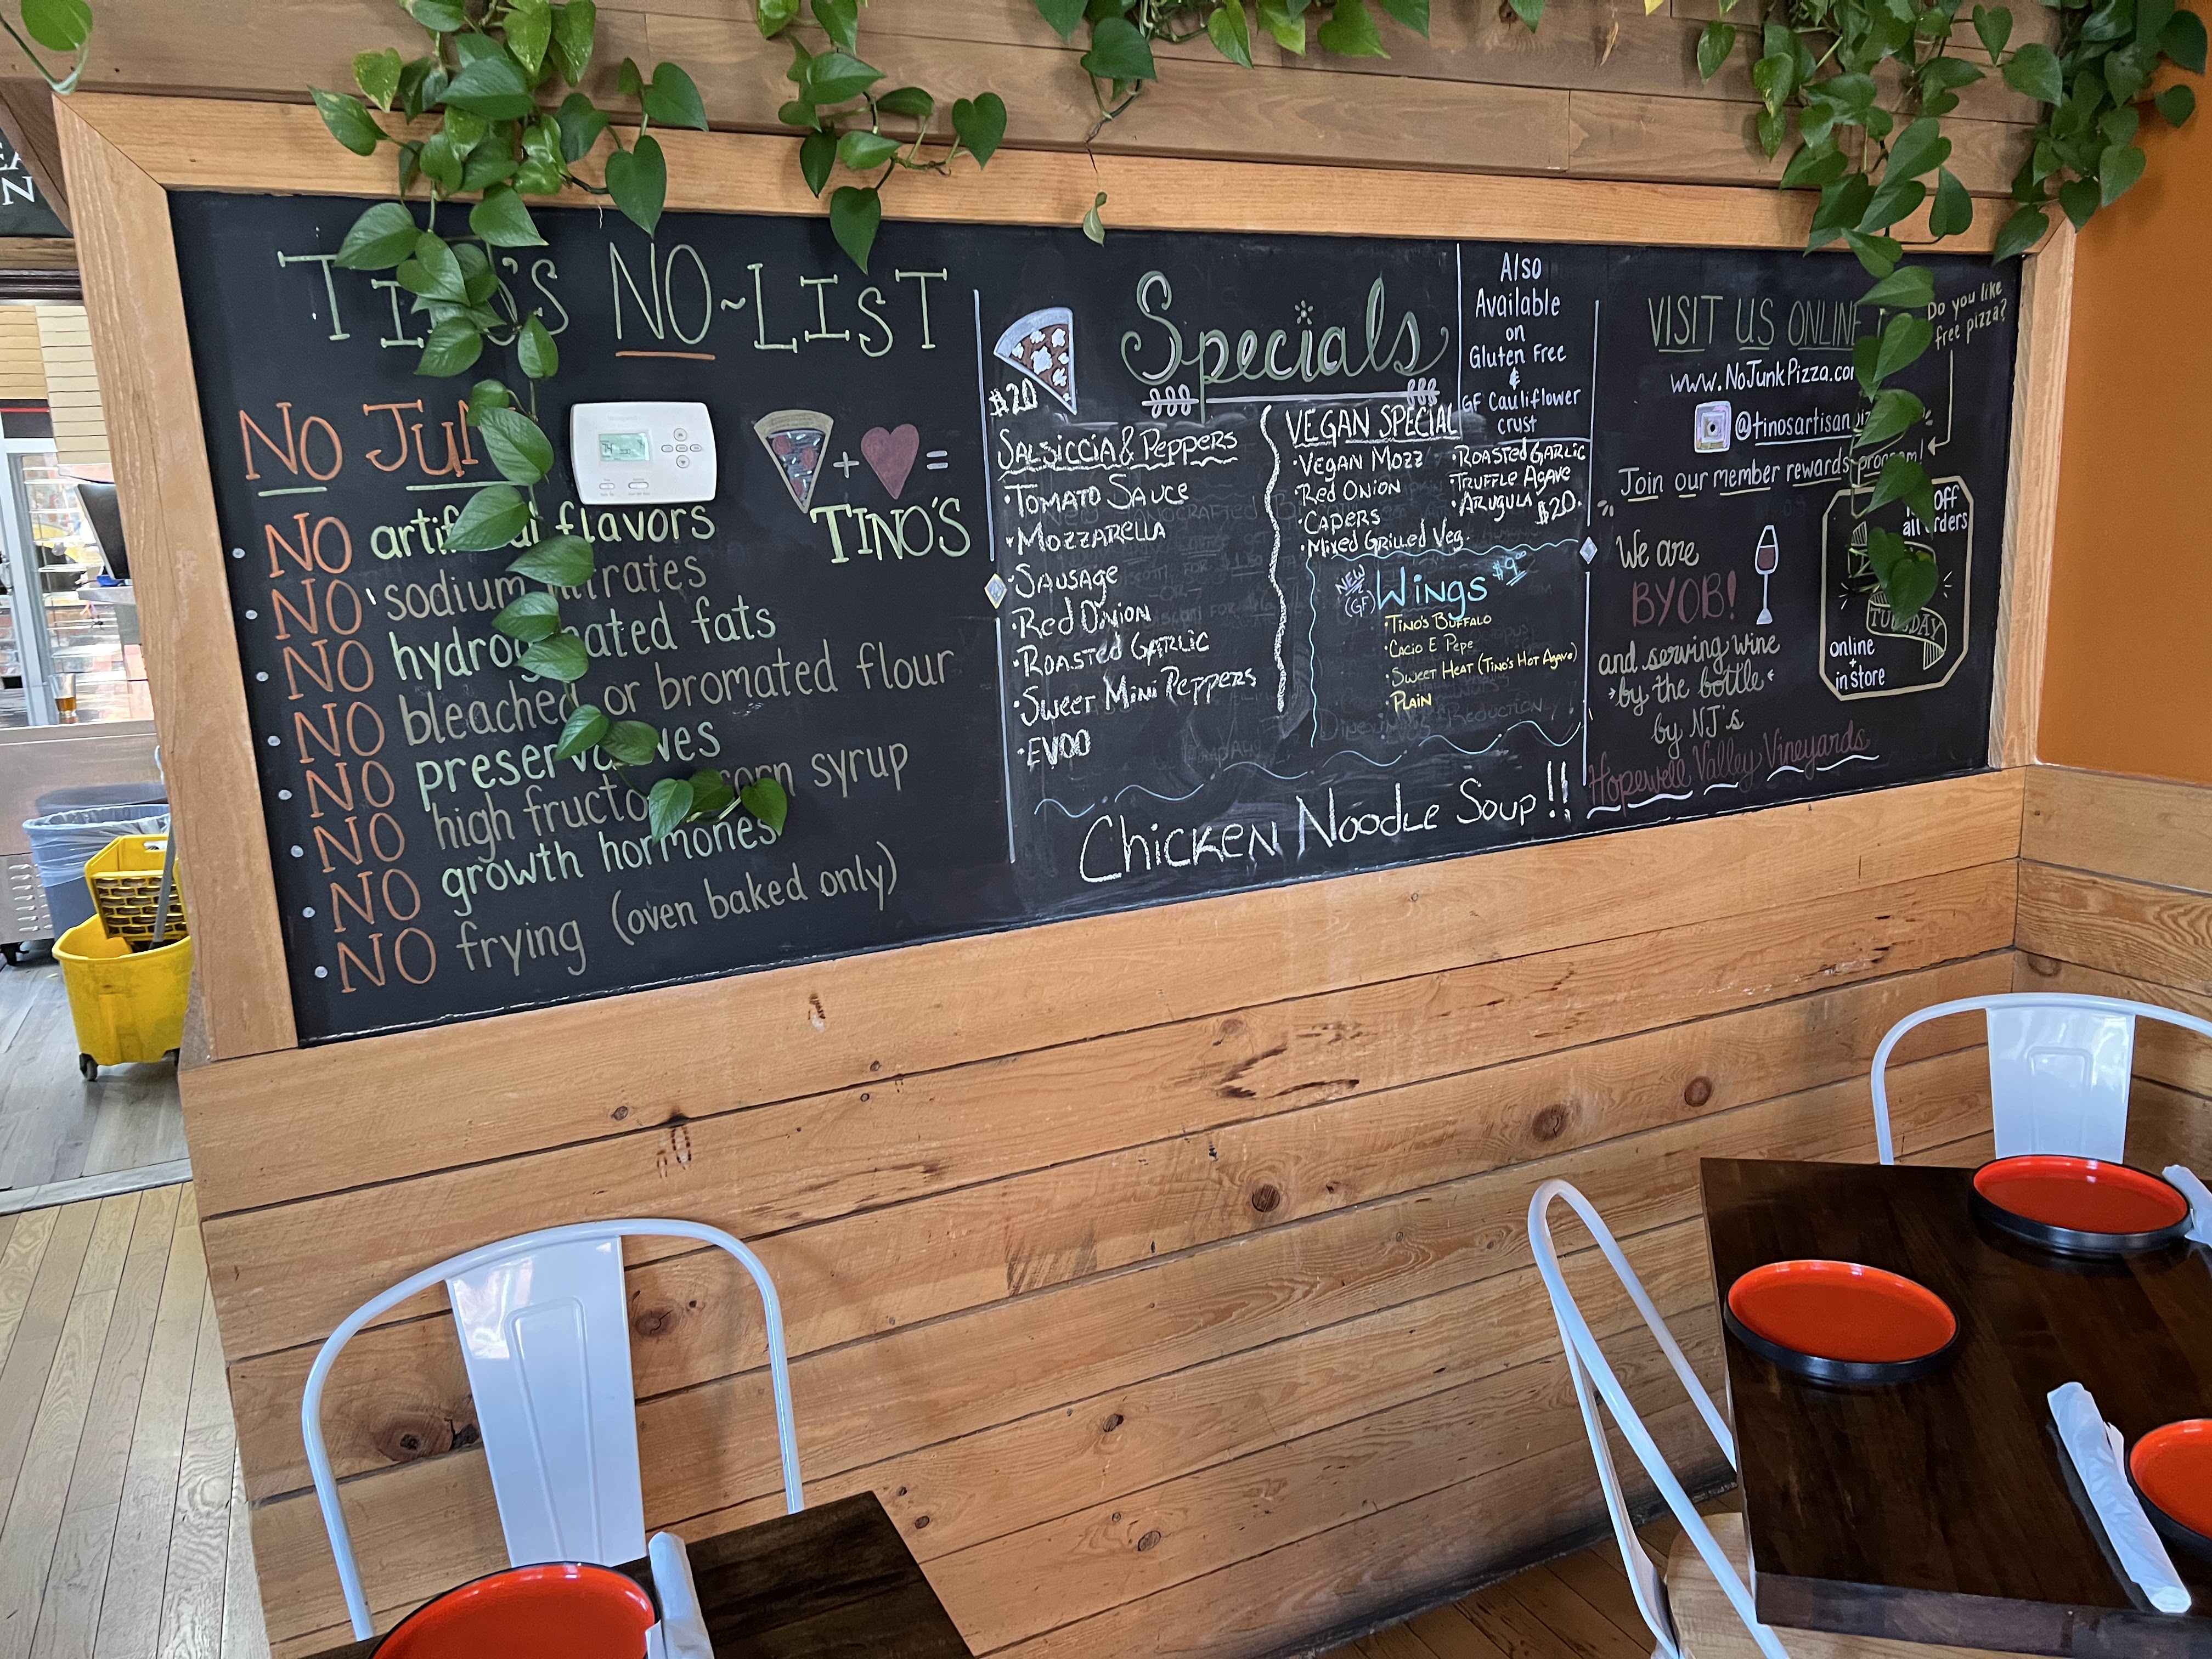 TINO'S NO~LIST
NO JUNK
+ =
TINO'S
• NO artificial flavors
• NO sodium nitrates
• NO hydrogenated fats
• NO bleached or bromated flour
• NO preservatives
• NO high fructose corn syrup
• NO growth hormones
• NO frying (oven baked only)
Specials
$20
Salsiccia & Peppers
• Tomato Sauce
• Mozzarella
• Sausage
• Red Onion
• Roasted Garlic
• Sweet Mini Peppers
• EVOO
VEGAN SPECIAL
• Vegan Mozz
• Red Onion
• Capers
• Mixed Grilled Veg.
• Roasted Garlic
Truffle Agave
• Arugula
$20.
NEW
(GF)
Wings $9.00
• Tino's Buffalo
• Cacio E Pepe
• Sweet Heat (Tino's Hot Agave)
• Plain
Chicken Noodle Soup!!
Also
Available
on
Gluten Free
&
GF Cauliflower
crust
VISIT US ONLINE!
www.NoJunkPizza.com
@tinosartisan
Join our member rewards program!
Do you like
free pizza?
We are
BYOB!
and serving wine
by the bottle
by NJ's
Hopewell Valley Vineyards
off
all orders
TUESDAY
online
+
in store